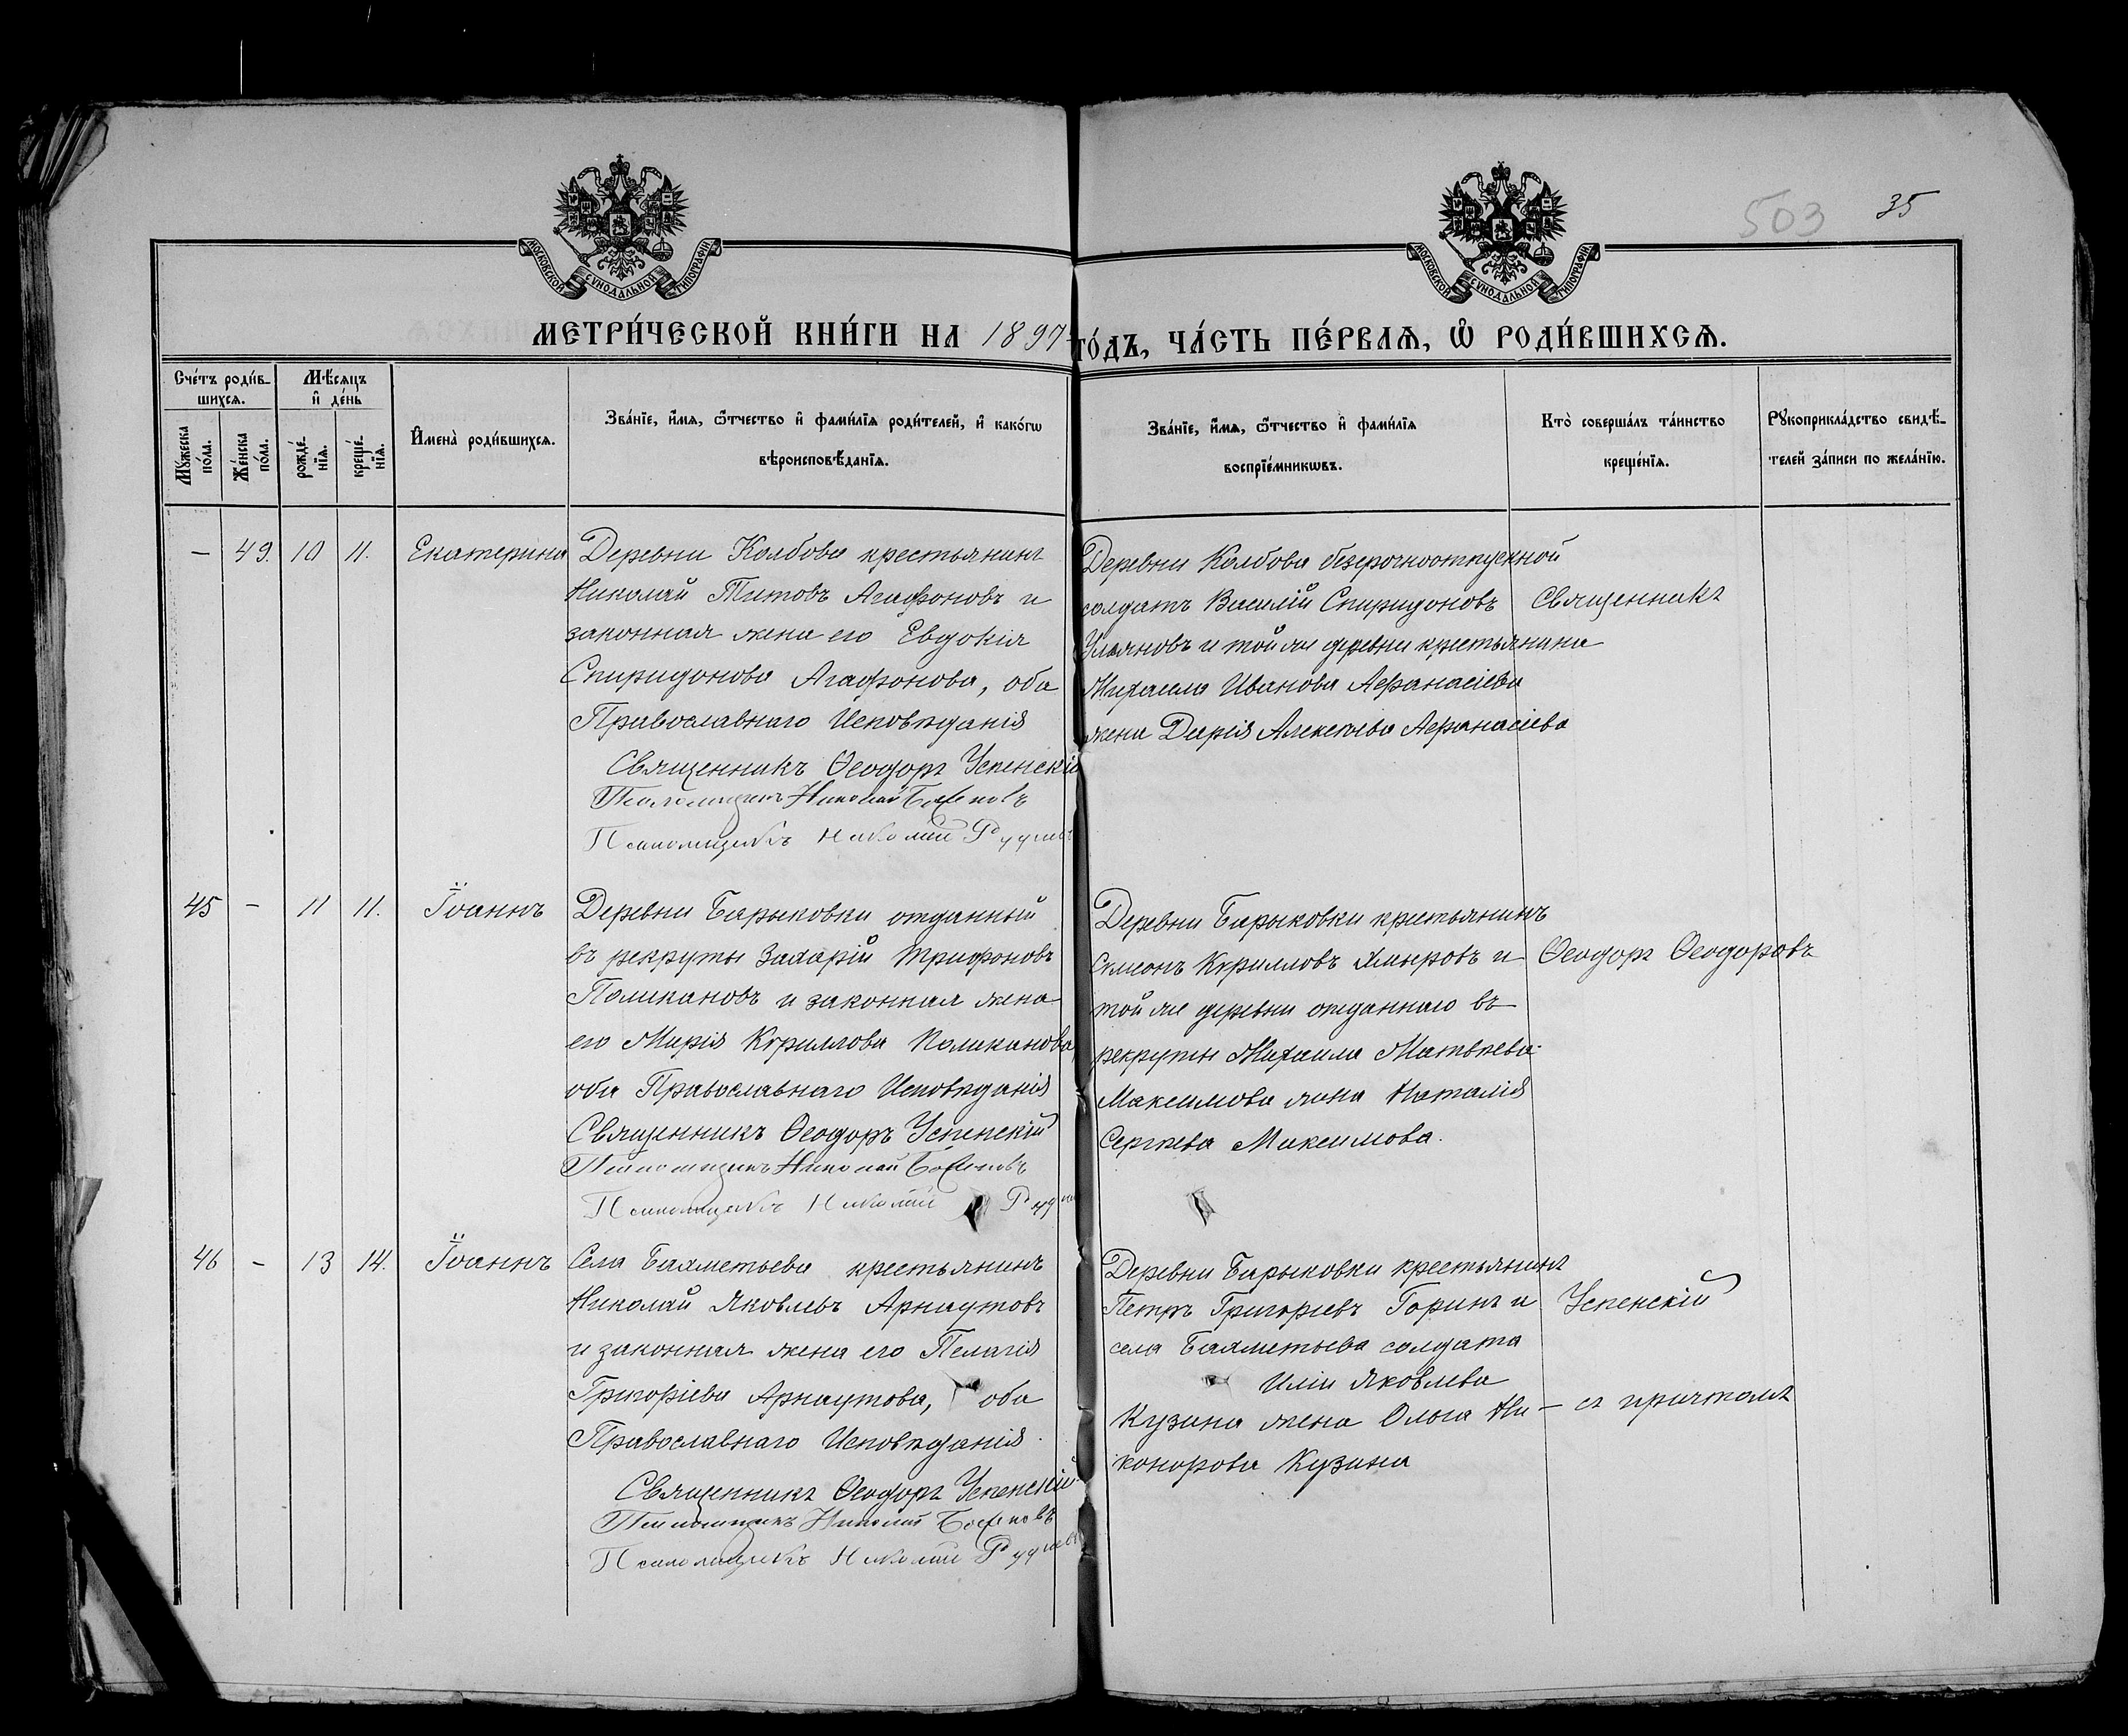 503 35
МОСКОВСКОЙ СѴНОДАЛЬНОЙ ТИПОГРАФІИ
МОСКОВСКОЙ СѴНОДАЛЬНОЙ ТИПОГРАФІИ
МЕТРИ́ЧЕСКОЙ КНИ́ГИ НА 1897 ГО́ДЪ, ЧА́СТЬ ПЕ́РВАѦ, Ѡ҆ РОДИ́ВШИХСѦ.
Сче́тъ роди́в-
шихсѧ.
Мꙋ́жеска по́ла.
Же́нска по́ла.
Мѣ́сѧцъ
и҆ де́нь
рожде́-
нїѧ.
креще́-
нїѧ.
И҆мена̀ роди́вшихсѧ.
Зва́нїе, и҆́мѧ, ѻ҆́тчество и҆ фами́лїѧ роди́телей, и҆ како́гѡ
вѣроисповѣ́данїѧ.
Зва́нїе, и҆́мѧ, ѻ҆́тчество и҆ фами́лїѧ
воспрїе́мникѡвъ.
Кто̀ соверша́лъ та́инство
креще́нїѧ.
Рꙋкоприкла́дство свидѣ́-
телей за́писи по жела́нїю.
— 49. 10 11. Екатерина
Деревни Колбова крестьянинъ
Николай Титовъ Агафоновъ и
законная жена его Евдокія
Спиридонова Агафонова, оба
Православнаго Исповѣданія
Священникъ Ѳеодоръ Успенскій
Псаломщикъ Николай
Псаломщикъ Николай
Деревни Колбова безсрочноотпускной
солдатъ Василій Спиридоновъ
Ульяновъ и той же деревни крестьянина
Михаила Иванова Афанасіева
жена Дарія Алексѣева Афанасіева
Священникъ
45 - 11 11. Іоаннъ
Деревни Барыковки отданный
въ рекруты Захарій Трифоновъ
Поликановъ и законная жена
его Марія Кѵриллова Поликанова
оба Православнаго Исповѣданія
Священникъ Ѳеодоръ Успенскій
Псаломщикъ Николай
Псаломщикъ Николай
Деревни Барыковки крестьянинъ
Симеонъ Кѵрилловъ и
той же деревни отданнаго въ
рекруты Михаила Матвѣева
Максимова жена Наталія
Сергѣева Максимова.
Ѳеодоръ Ѳеодоровъ
46 - 13 14. Іоаннъ
Села Бахметьева крестьянинъ
Николай Яковлевъ Арнаутовъ
и законная жена его Пелагія
Григоріева Арнаутова, оба
Православнаго Исповѣданія.
Священникъ Ѳеодоръ Успенскій
Псаломщикъ Николай
Псаломщикъ Николай
Деревни Барыковки крестьянинъ
Петръ Григоріевъ Горинъ и
села Бахметьева солдата
Иліи Яковлева
Кузина жена Ольга Ни-
конорова Кузина
Успенскій
— съ причтомъ